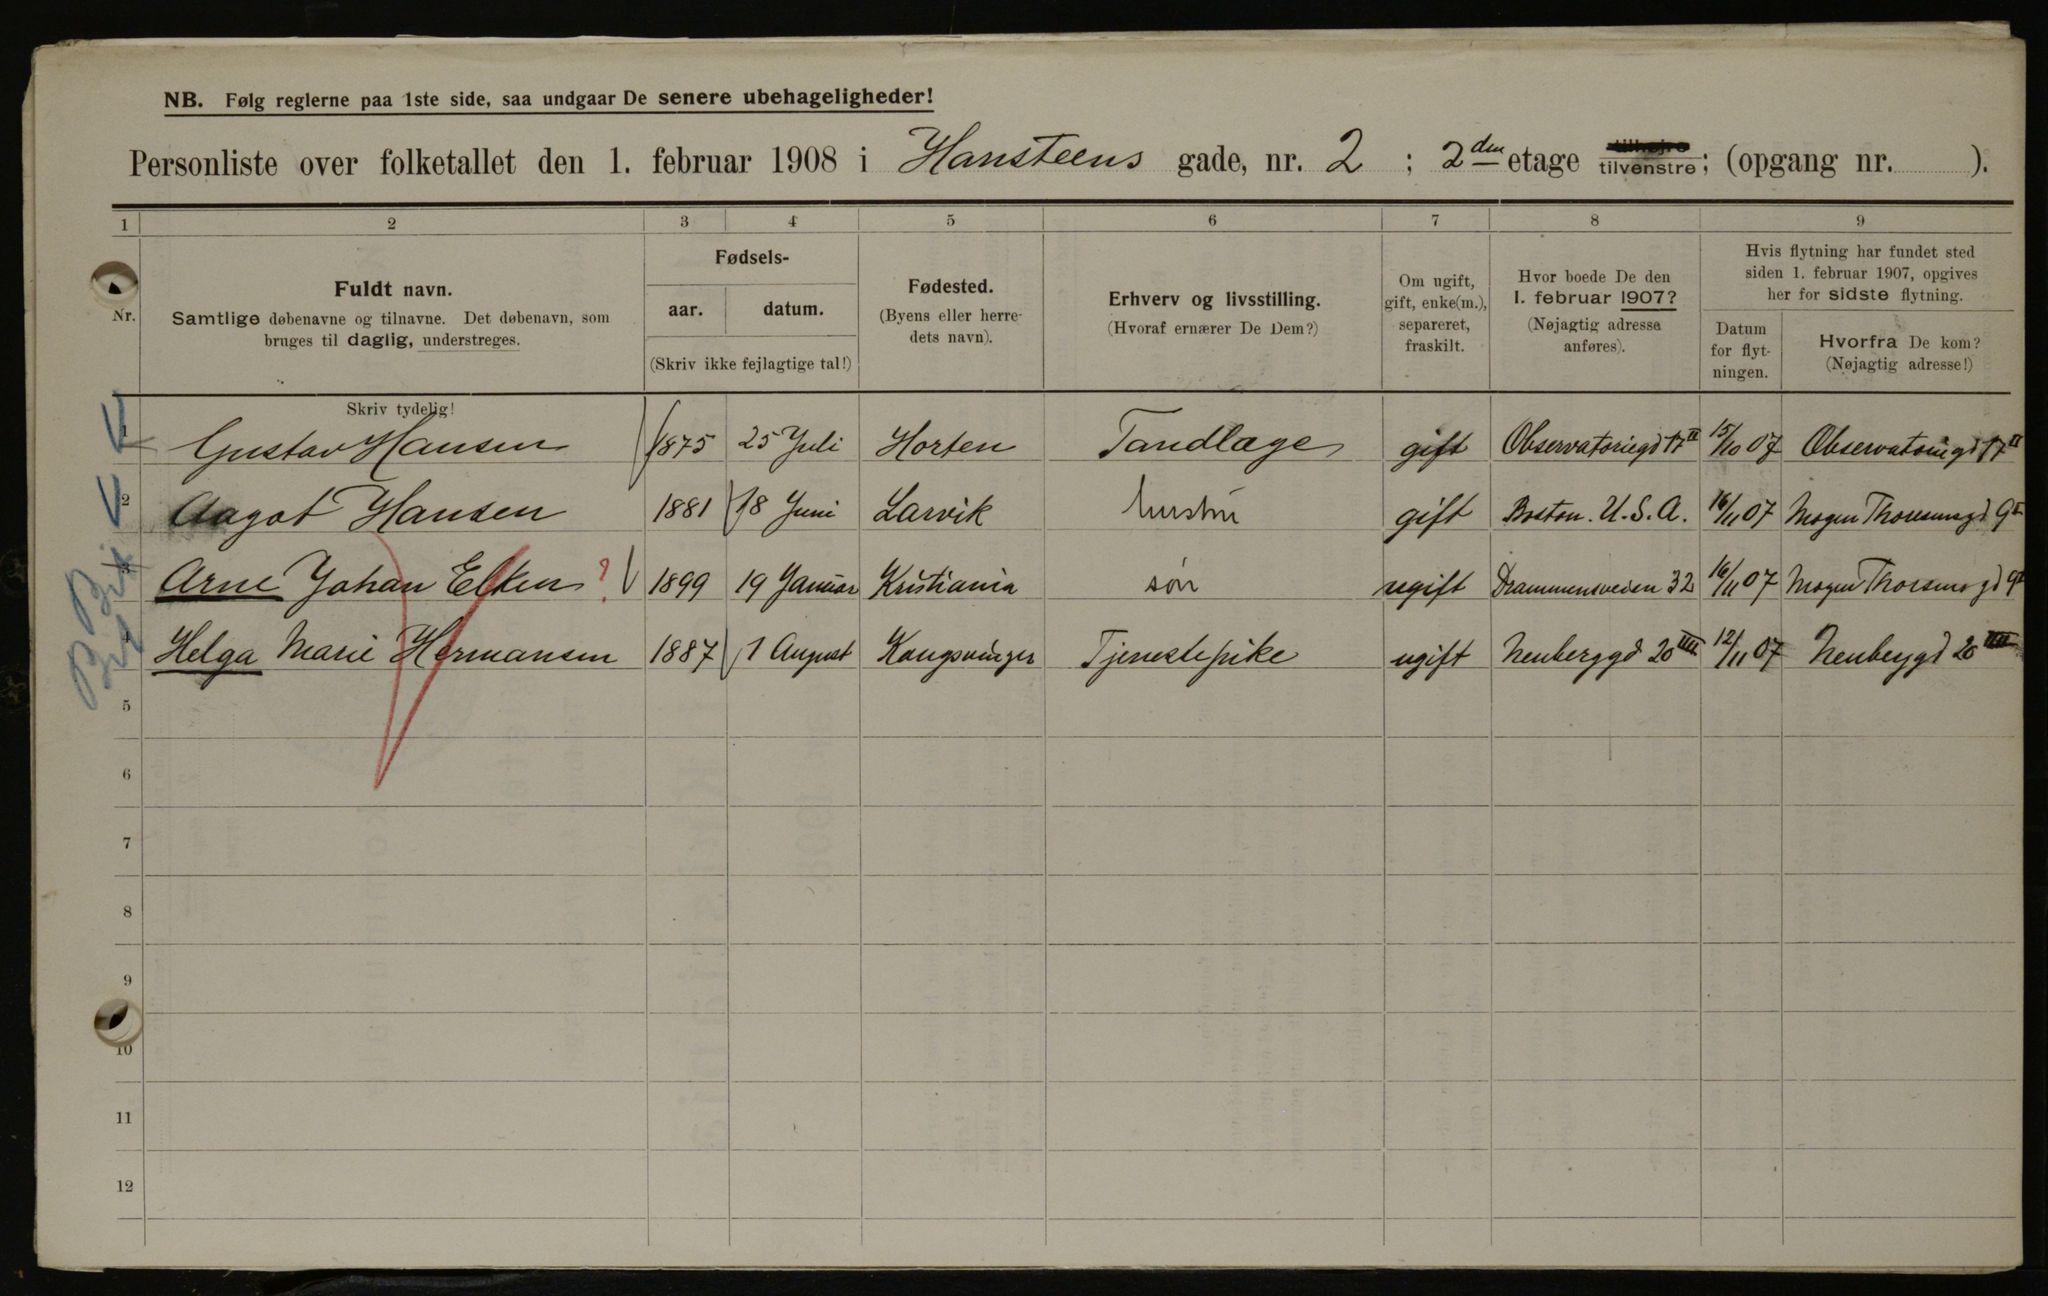 NB. Følg reglerne paa 1ste side, saa undgaar De senere ubehageligheder!
Personliste over folketallet den 1. februar 1908 i Hansteens gade, nr. 2 ; 2den etage tilhøjre tilvenstre; (opgang nr. ).
1 2 3 4 5 6 7 8 9
Nr.
Fuldt navn.
Samtlige døbenavne og tilnavne. Det døbenavn, som
bruges til daglig, understreges.
Skriv tydelig!
Fødsels-
aar. datum.
(Skriv ikke fejlagtige tal!)
Fødested.
(Byens eller herre-
dets navn).
Erhverv og livsstilling.
(Hvoraf ernærer De Dem?)
Om ugift,
gift, enke(m.),
separeret,
fraskilt.
Hvor boede De den
1. februar 1907?
(Nøjagtig adresse
anføres).
Hvis flytning har fundet sted
siden 1. februar 1907, opgives
her for sidste flytning.
Datum
for flyt-
ningen.
Hvorfra De kom?
(Nøjagtig adresse!)
1 Gustav Hansen 1875 25 Juli Horten Tandlæge gift Observatoriegd 17 II 15/10 07 Observatoriegd 17 II
2 Aagot Hansen 1881 18 Juni Larvik hustru gift Boston. U.S.A. 16/11 07 Mogen Thoresensgd 9 I
3 Arne Johan Elken ? 1899 19 Januar Kristiania søn ugift Drammensveien 32 16/11 07 Mogen Thoresensgd 9 I
4 Helga Marie Hermansen 1887 1 August Kongsvinger Tjenestepike ugift Neuberggd 20 IIII 12/11 07 Neuberggd 20 IIII
5
6
7
8
9
10
11
12